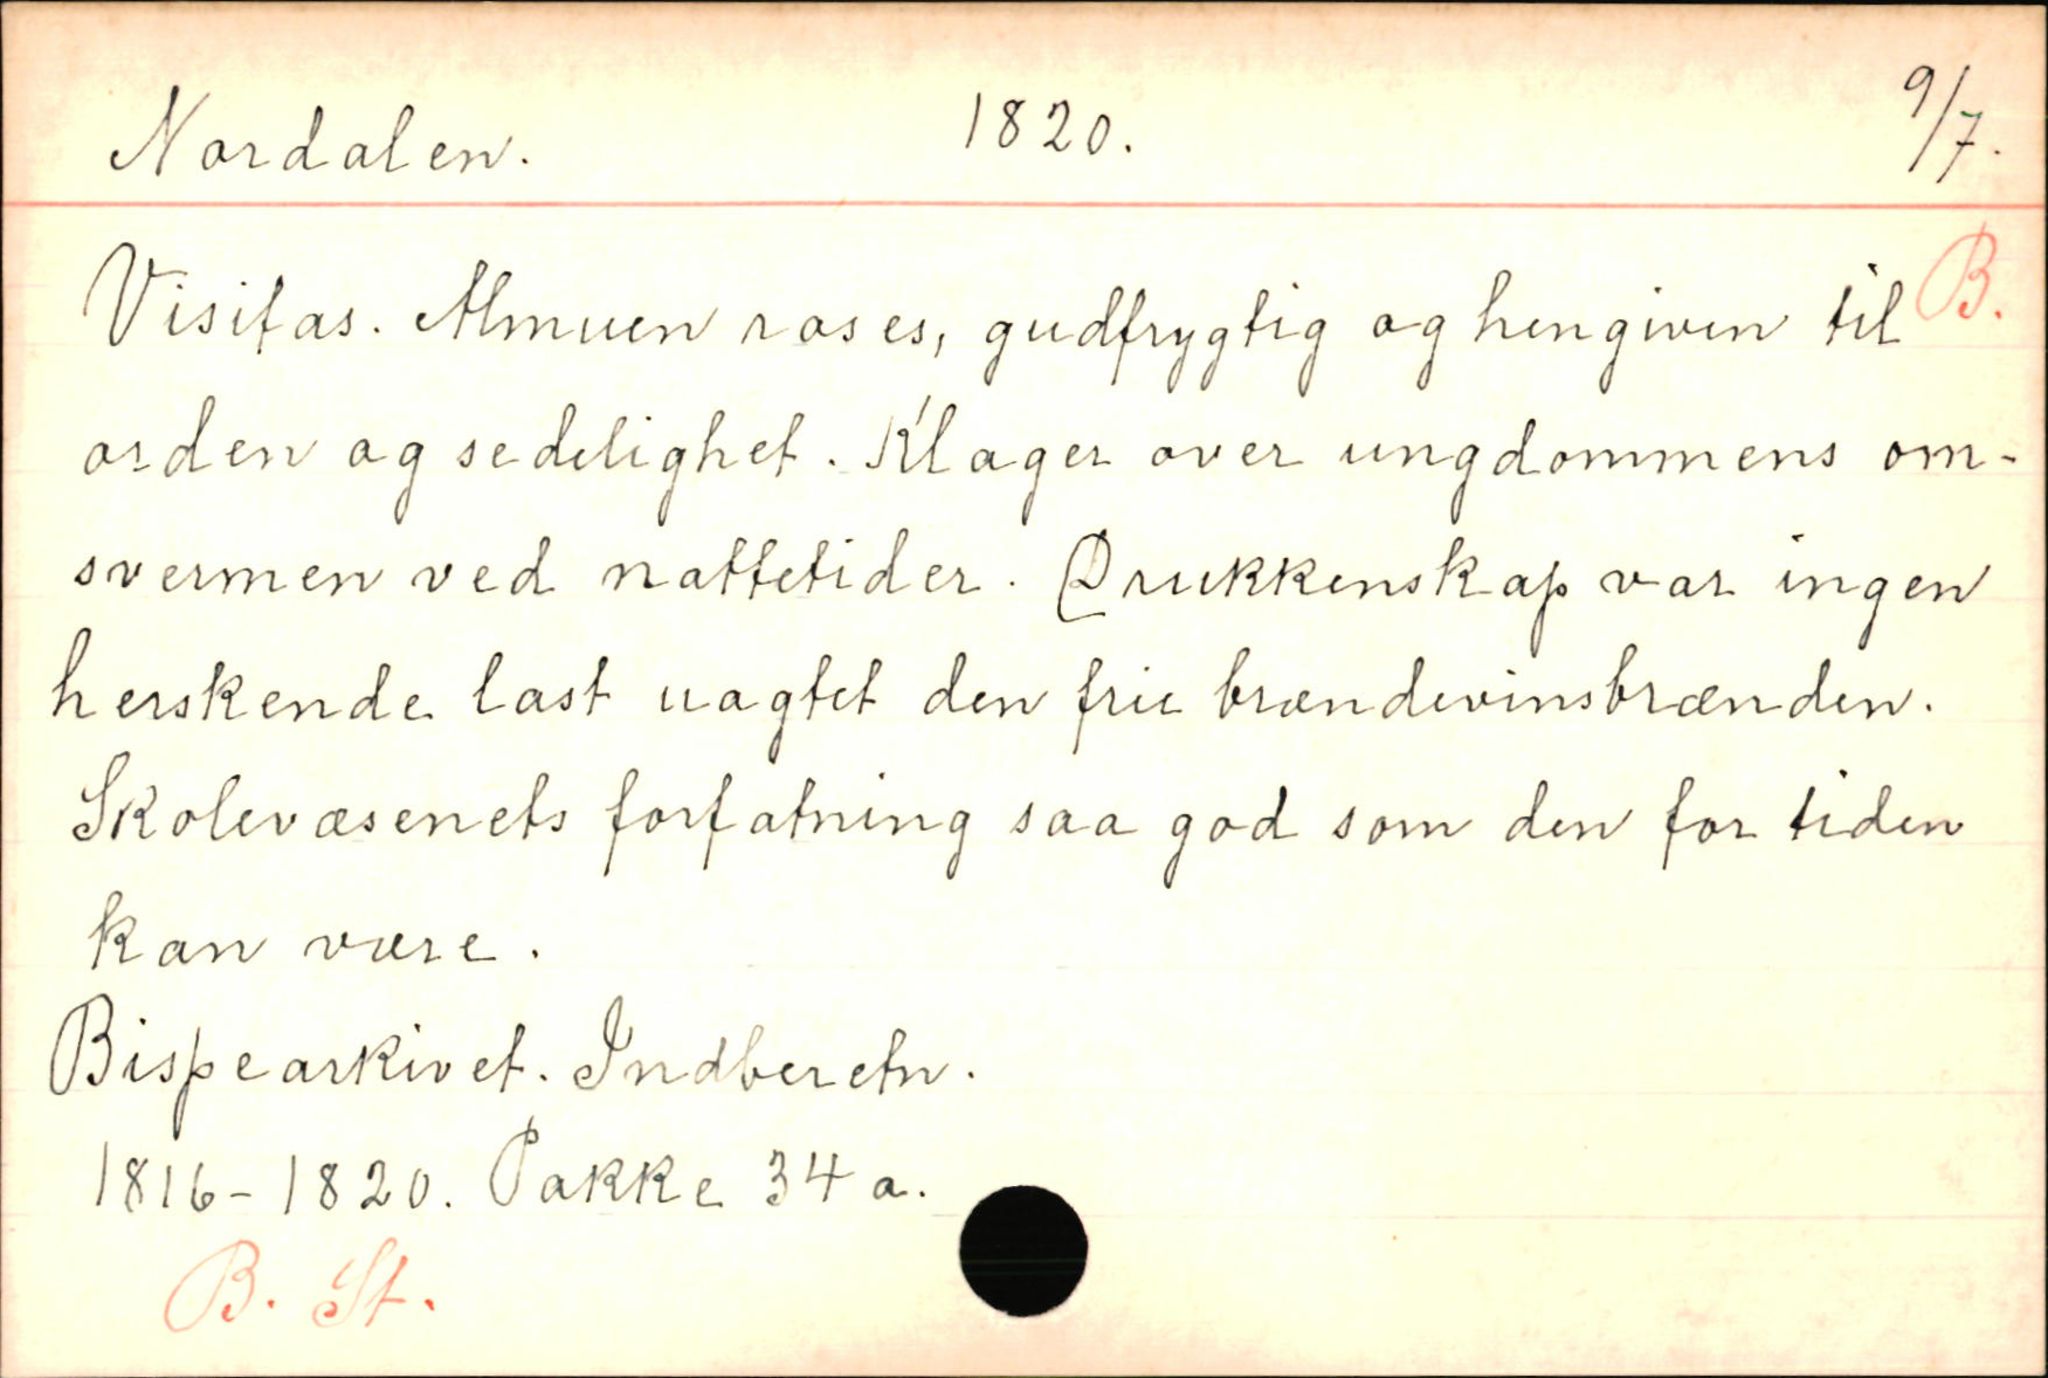 Nordalen. 1820. 9/7.
B.
Visitas. Almuen roses, gudfrygtig og hengiven til
orden og sedelighet. Klager over ungdommens om-
svermen ved nattetider. Drukkenskap var ingen
herskende last uagtet den frie brændevinsbrænden.
Skolevæsenets forfatning saa god som den for tiden
kan være.
Bispearkivet. Indberetn.
1816-1820. Pakke 34 a.
B. St.